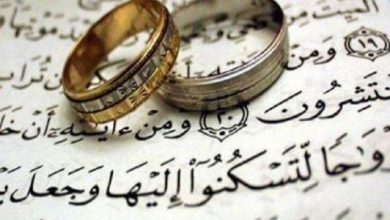 موتها
١٩ وَمِنْ تُرَابٍ
نتَشِرُونَ ٢٠ وَمِنْ ءَايَٰتِهِۦٓ أَنْ خَلَ
وَٰجًا لِّتَسْكُنُوٓا۟ إِلَيْهَا وَجَعَلَ بَ